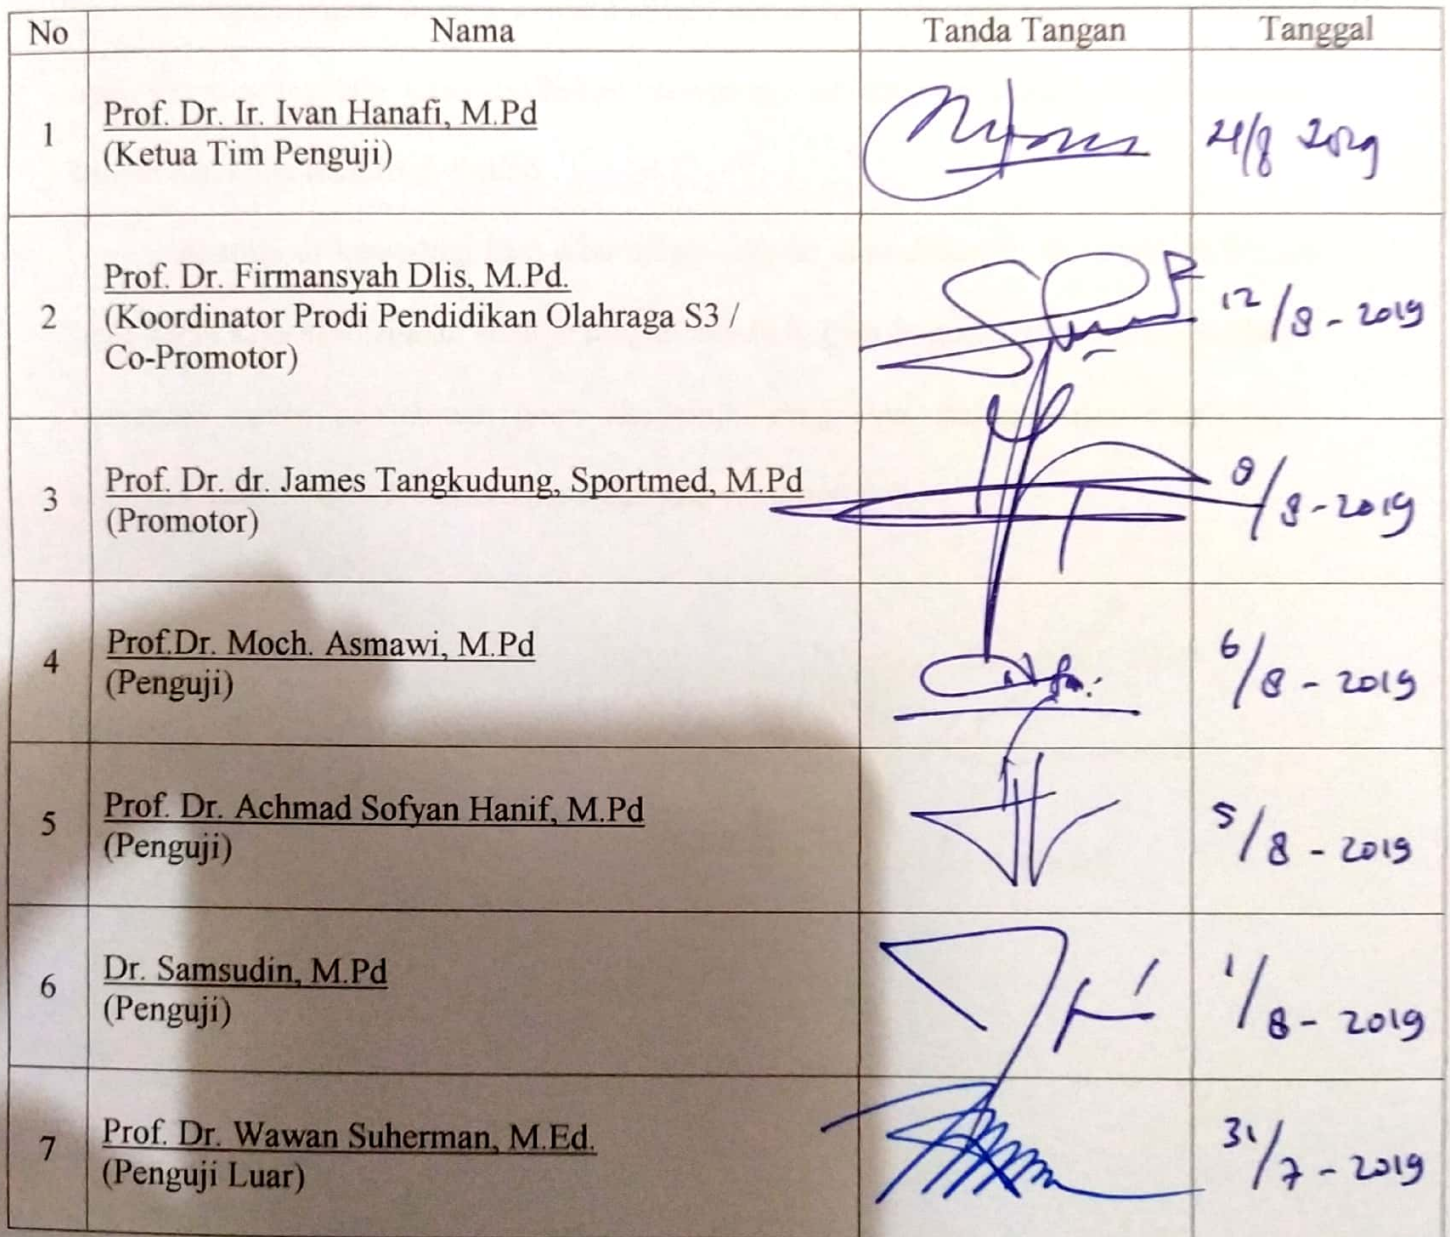 No Nama Tanda Tangan Tanggal
1 Prof. Dr. Ir. Ivan Hanafi, M.Pd
(Ketua Tim Penguji)
21/8 2019
2 Prof. Dr. Firmansyah Dlis, M.Pd.
(Koordinator Prodi Pendidikan Olahraga S3 /
Co-Promotor)
12/8-2019
3 Prof. Dr. dr. James Tangkudung, Sportmed, M.Pd
(Promotor)
/8-2019
4 Prof.Dr. Moch. Asmawi, M.Pd
(Penguji)
6/8-2019
5 Prof. Dr. Achmad Sofyan Hanif, M.Pd
(Penguji)
5/8-2019
6 Dr. Samsudin, M.Pd
(Penguji)
1/8-2019
7 Prof. Dr. Wawan Suherman, M.Ed.
(Penguji Luar)
31/7-2019